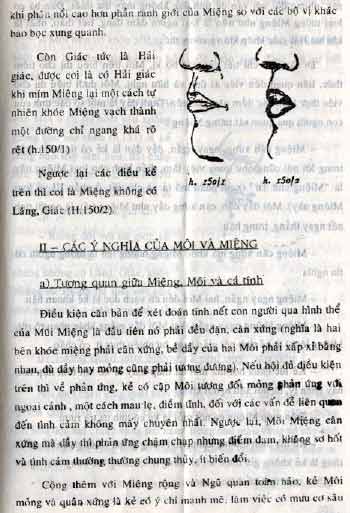 khi phần nổi cao hơn phần ranh giới của Miệng so với các bộ vị khác
bao bọc xung quanh.
Còn Giác tức là Hải
giác, được coi là có Hải giác
khi mím Miệng lại một cách tự
nhiên khóe Miệng vạch thành
một đường chỉ ngang khá rõ
rệt (h.150/1)
Ngược lại các điều kể
trên thì coi là Miệng không có
Lăng, Giác (H.150/2).
h. 150/1 h. 150/2
II – CÁC Ý NGHĨA CỦA MÔI VÀ MIỆNG
a) Tương quan giữa Miệng, Môi và cá tính
Điều kiện căn bản để xét đoán tính nết con người qua hình thể
của Môi Miệng là đầu tiên nó phải đều đặn, cân xứng (nghĩa là hai
bên khóe miệng phải cân xứng, bề dầy của hai Môi phải xấp xỉ bằng
nhau, dù dầy hay mỏng cũng phải tương đương). Nếu hội đủ điều kiện
trên thì về phản ứng, kẻ có cặp Môi tương đối mỏng phản ứng với
ngoại cảnh , một cách mau lẹ, điềm tĩnh, đối với các vấn đề liên quan
đến tình cảm không mấy chuyên nhất. Ngược lại, Môi Miệng cân
xứng mà dầy thì phản ứng chậm chạp nhưng điềm đạm, không sơ hốt
và tình cảm thường thường chung thủy, ít biến đổi.
Cộng thêm với Miệng rộng và Ngũ quan toàn hảo, kẻ Môi
mỏng và quân xứng là kẻ có ý chí mạnh mẽ, làm việc có mưu cơ sâu